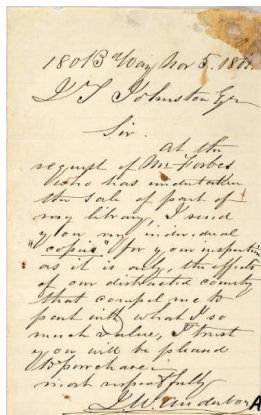 180 B way Nov 5. 186
J T Johnston Esqr
Sir.
at the
request of Mr Forbes
who has undertaken
the sale of part of
my library, I send
you my individual
"copies" for your inspection
as it is only, the effects
of our distracted country
that compel me to
part with what I so
much value, I trust
you will be pleased
to purchase.
most respectfully
A